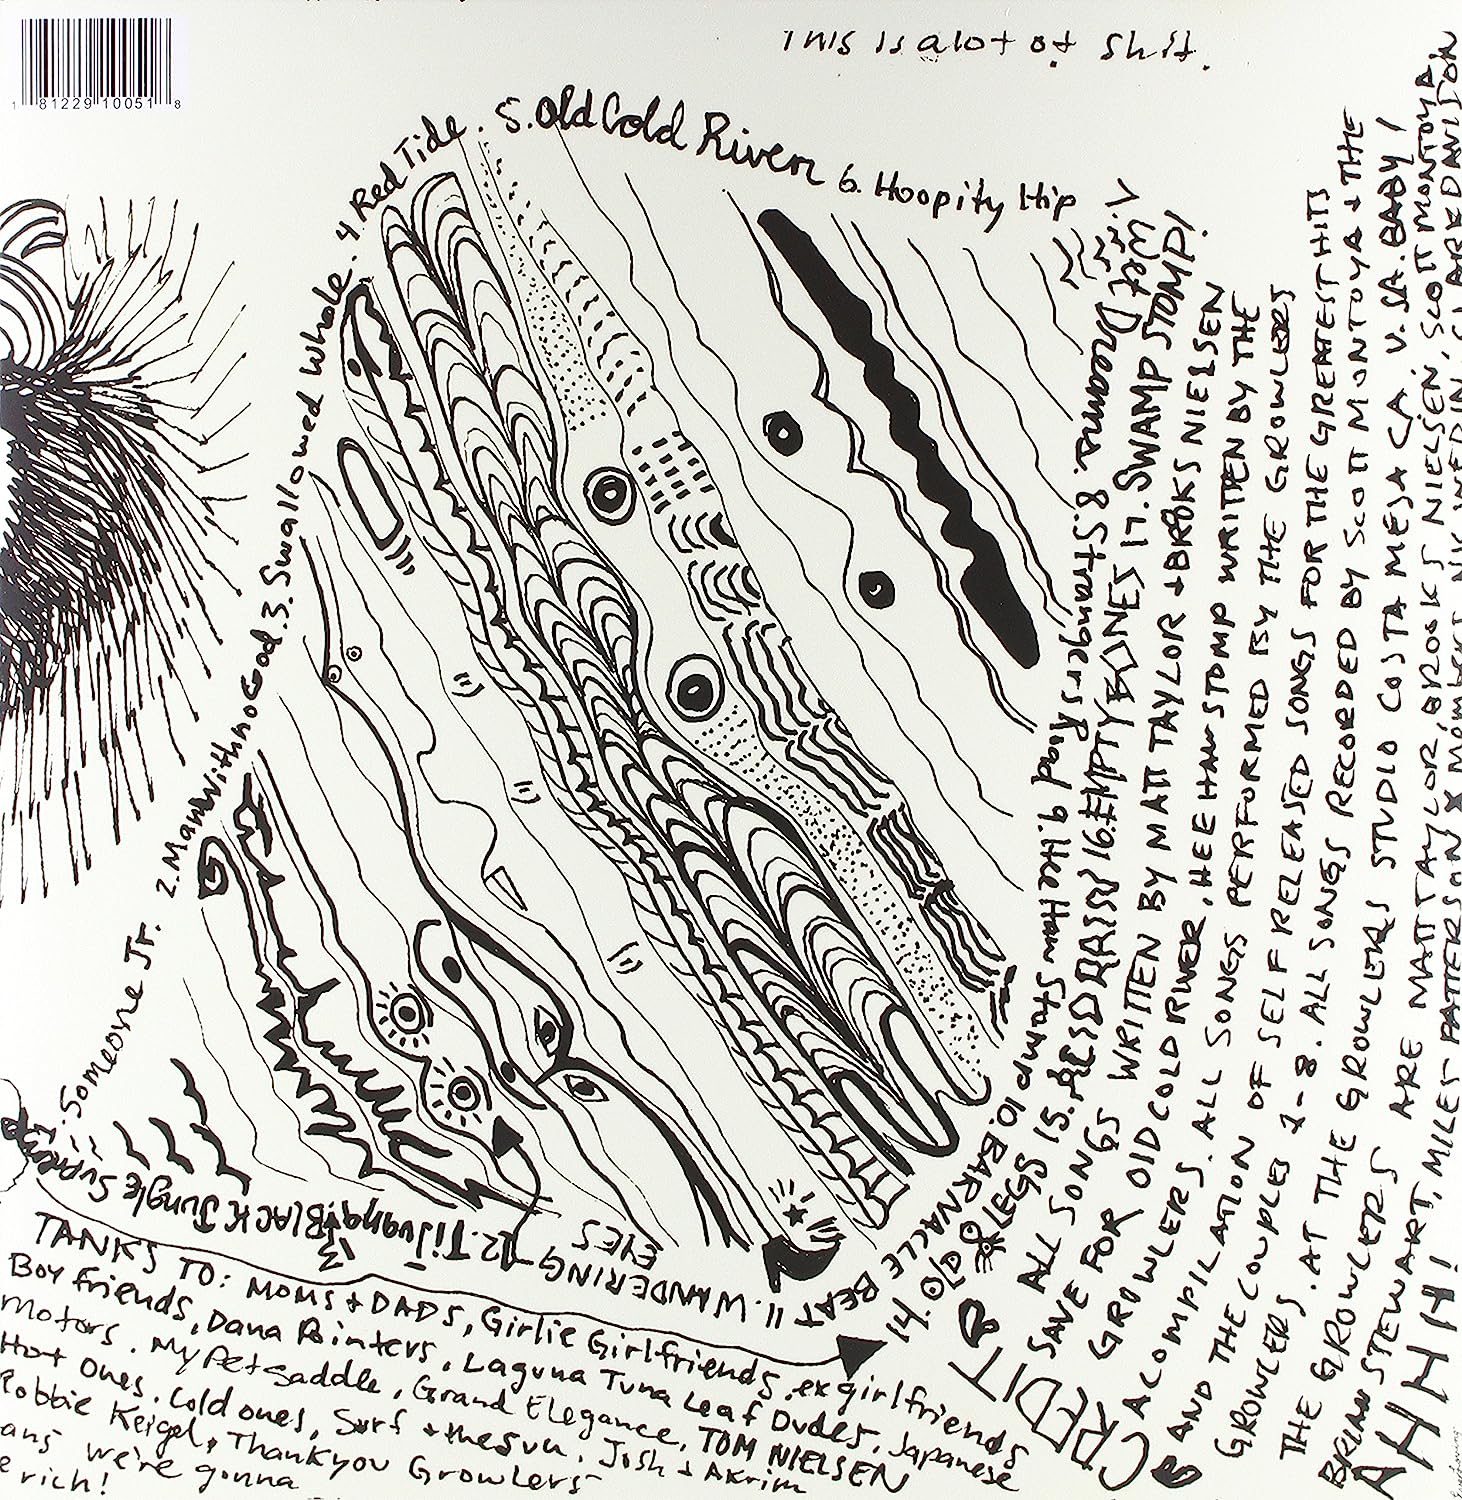 1 81229 10051 8
This is alot of shit.
1. Someone Jr. 2. Man With no God. 3. Swallowed Whole. 4. Red Tide. 5. Old Cold River 6. Hoopity Hip
7. Wet Dreams. 8. Strangers Road 9. Hee Haw Stomp 10. BARNACLE BEAT
11. WANDERING EYES
12. Tijuana 13. BLACK Jungle Supreme
14. OlD LEGGS 15. ACID RAIN 16. EMPTY BONES 17. SWAMP STOMP!
CREDITS
ALL SONGS WRITTEN BY MATT TAYLOR + BROOKS NIELSEN
SAVE FOR OlD COLD RIVER, HEE HAW STOMP WRITTEN BY THE
GROWLERS. ALL SONGS PERFORMED BY THE GROWLERS
A COMPILATION OF SELF RELEASED SONGS FOR THE GREATEST HITS
AND THE COUPLES 1-8. ALL SONGS RECORDED BY SCOTT MONTOYA + THE
GROWLERS. AT THE GROWLERS STUDIO COSTA MESA CA. U.SA. BABY!
THE GROWLERS ARE MATT TAYLOR, BROOKS NIELSEN, SCOTT MONTOYA
BRIAN STEWART, MILES PATTERSON
CLARK DAVISON
AHHHH!
TANKS TO: MOMS + DADS, Girlie Girlfriends, exgirlfriends
Boy friends, Dana Pointers, Laguna Tuna Leaf Dudes, Japanese
Motors. My Pet Saddle, Grand Elegance, TOM NIELSEN
Hot Ones. Cold ones, Surf + the Sun, Josh + Akrim
Robbie Keigel, Thankyou Growlers
we're gonna
rich!